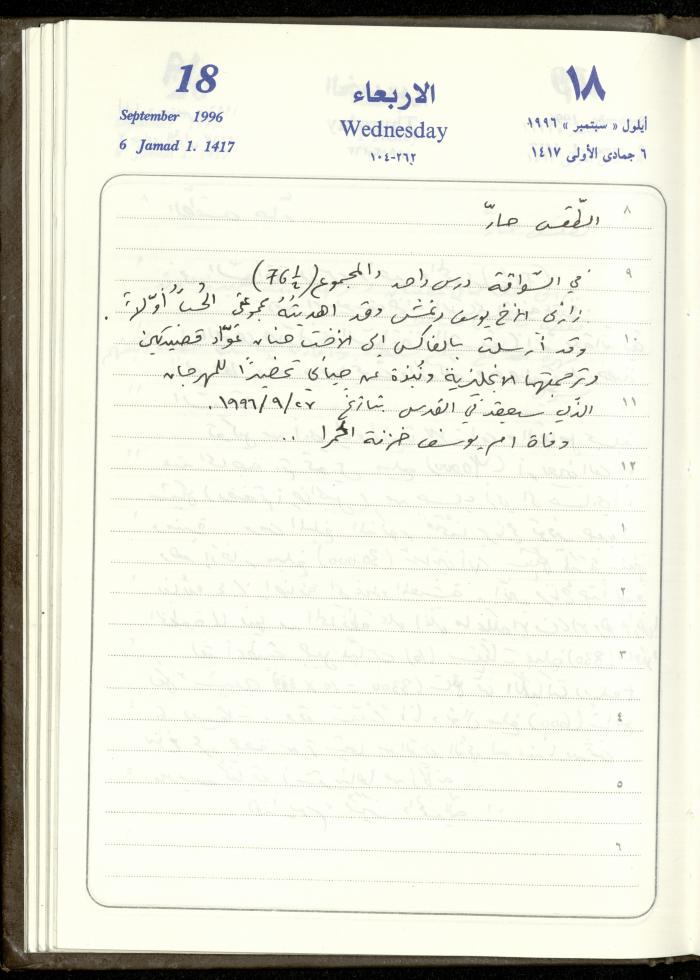 18
September 1996
6 Jamad 1. 1417
الاربعاء
Wednesday
٢٦٢-١٠٤
١٨
أيلول « سبتمبر » ١٩٩٦
٦ جمادى الأولى ١٤١٧
٨
الطّقس حارّ
٩
في السّواقة درس واحد والمجموع (76¼)
زارني الأخ يوسف دغش وقد اهديتُهُ مجموعتي الحُبّ أوّلاً .
١٠
وقد أرسلت بالفاكس إلى الأخت حنان عوّاد قصيدتين
وترجمتهما الانجليزية ونُبذة عن حياتي تحضيرًا للمهرجان
١١
الذي سيعقد في القدس بتاريخ ١٩٩٦/٩/٢٧.
وفاة ام يوسف خزنة الحمرا ..
١٢
١
٢
٣
٤
٥
٦